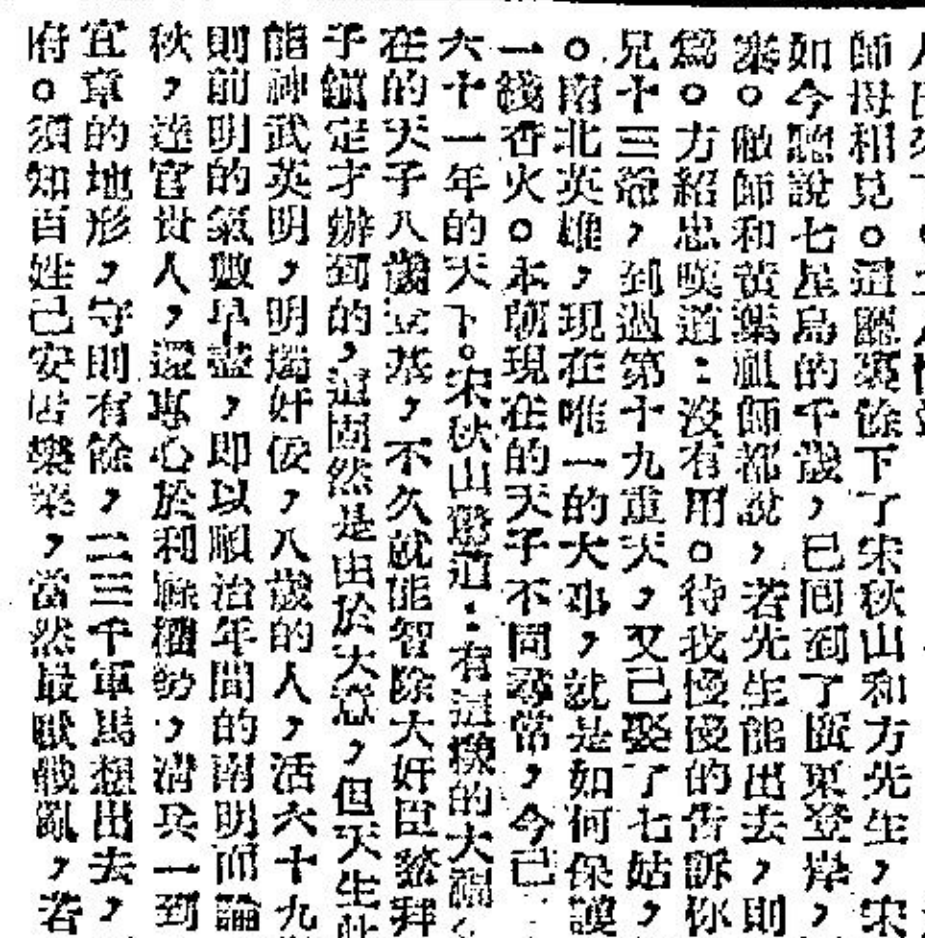 師母相見。這廳裏餘下了宋秋山和方先生，宋
如今聽說七星島的千歲，已囘到了廣東登岸，
業。敝師和黃葉祖師都說，若先生能出去，則
爲。方紹忠嘆道：沒有用。待我慢慢的告訴你
兄十三爺，到過第十九重天，又已娶了七姑，
。南北英雄，現在唯一的大事，就是如何保護
一綫香火。本朝現在的天子不同尋常，今已
六十一年的天下。宋秋山驚道：有這樣的大福
在的天子八歲立基，不久就能智除大奸臣鰲拜
子鎮定才辦到的，這固然是由於大意，但天生此
能神武英明，明燭奸佞，八歲的人，活六十九
則前明的氣數早盡，即以順治年間的南明而論
秋，達官貴人，還專心於利祿權勢，清兵一到
宜章的地形，守則有餘，二三千軍馬想出去，
府。須知百姓已安居樂業，當然最厭戰亂，若